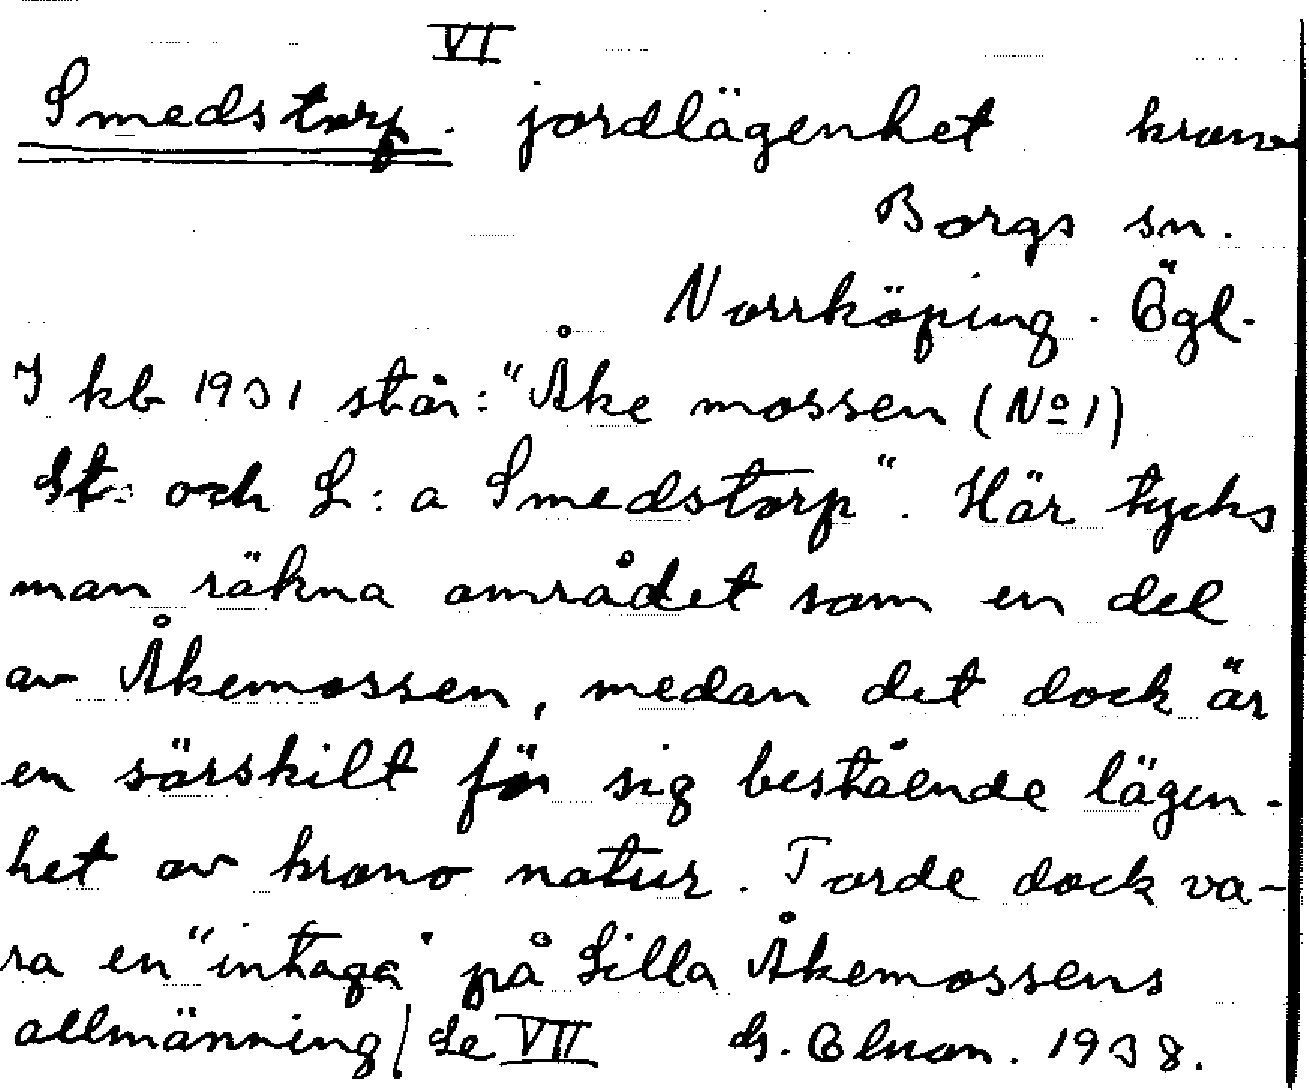 VI
Smedstorp. jordlägenhet krono
Borgs sn.
Norrköping. Ögl.
I kb 1931 står: "Åke mossen (No 1)
St. och L:a Smedstorp". Här tycks
man räkna området som en del
av Åkemossen, medan det dock är
en särskilt för sig bestående lägen-
het av krono natur. Torde dock va-
ra en "intaga" på Lilla Åkemossens
allmänning/ Se VII G. Elnon. 1938.